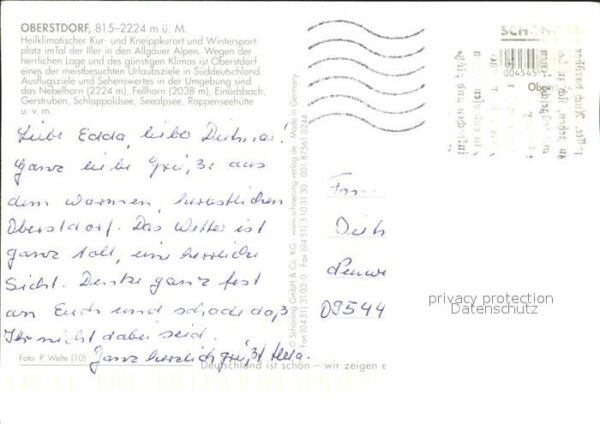 OBERSTDORF, 815–2224 m ü. M.
Heilklimatischer Kur- und Kneippkurort und Wintersport-
platz im Tal der Iller in den Allgäuer Alpen. Wegen der
herrlichen Lage und des günstigen Klimas ist Oberstdorf
eines der meistbesuchten Urlaubsziele in Süddeutschland.
Ausflugsziele und Sehenswertes in der Umgebung sind
das Nebelhorn (2224 m), Fellhorn (2038 m), Einödsbach,
Gerstruben, Schlappoldsee, Seealpsee, Rappenseehütte
u. v. m.
Liebe Edda, lieber Dietmar.
Ganz liebe Grüße aus
dem warmen, herbstlichen
Oberstdorf. Das Wetter ist
ganz toll, eine herrliche
Sicht. Denke ganz fest
an Euch und schade daß
Ihr nicht dabei seid.
Ganz herzlich grüßt
Foto: P. Welte (10)
© Schöning GmbH & Co. KG · www.schoening-verlag.de · Made in Germany
Fax (04 51) 3 10 31 30 001 87361 0244
SCHÖNING
004545
Ober
Diet
09544
privacy protection
Datenschutz
Deutschland ist schön – wir zeigen e